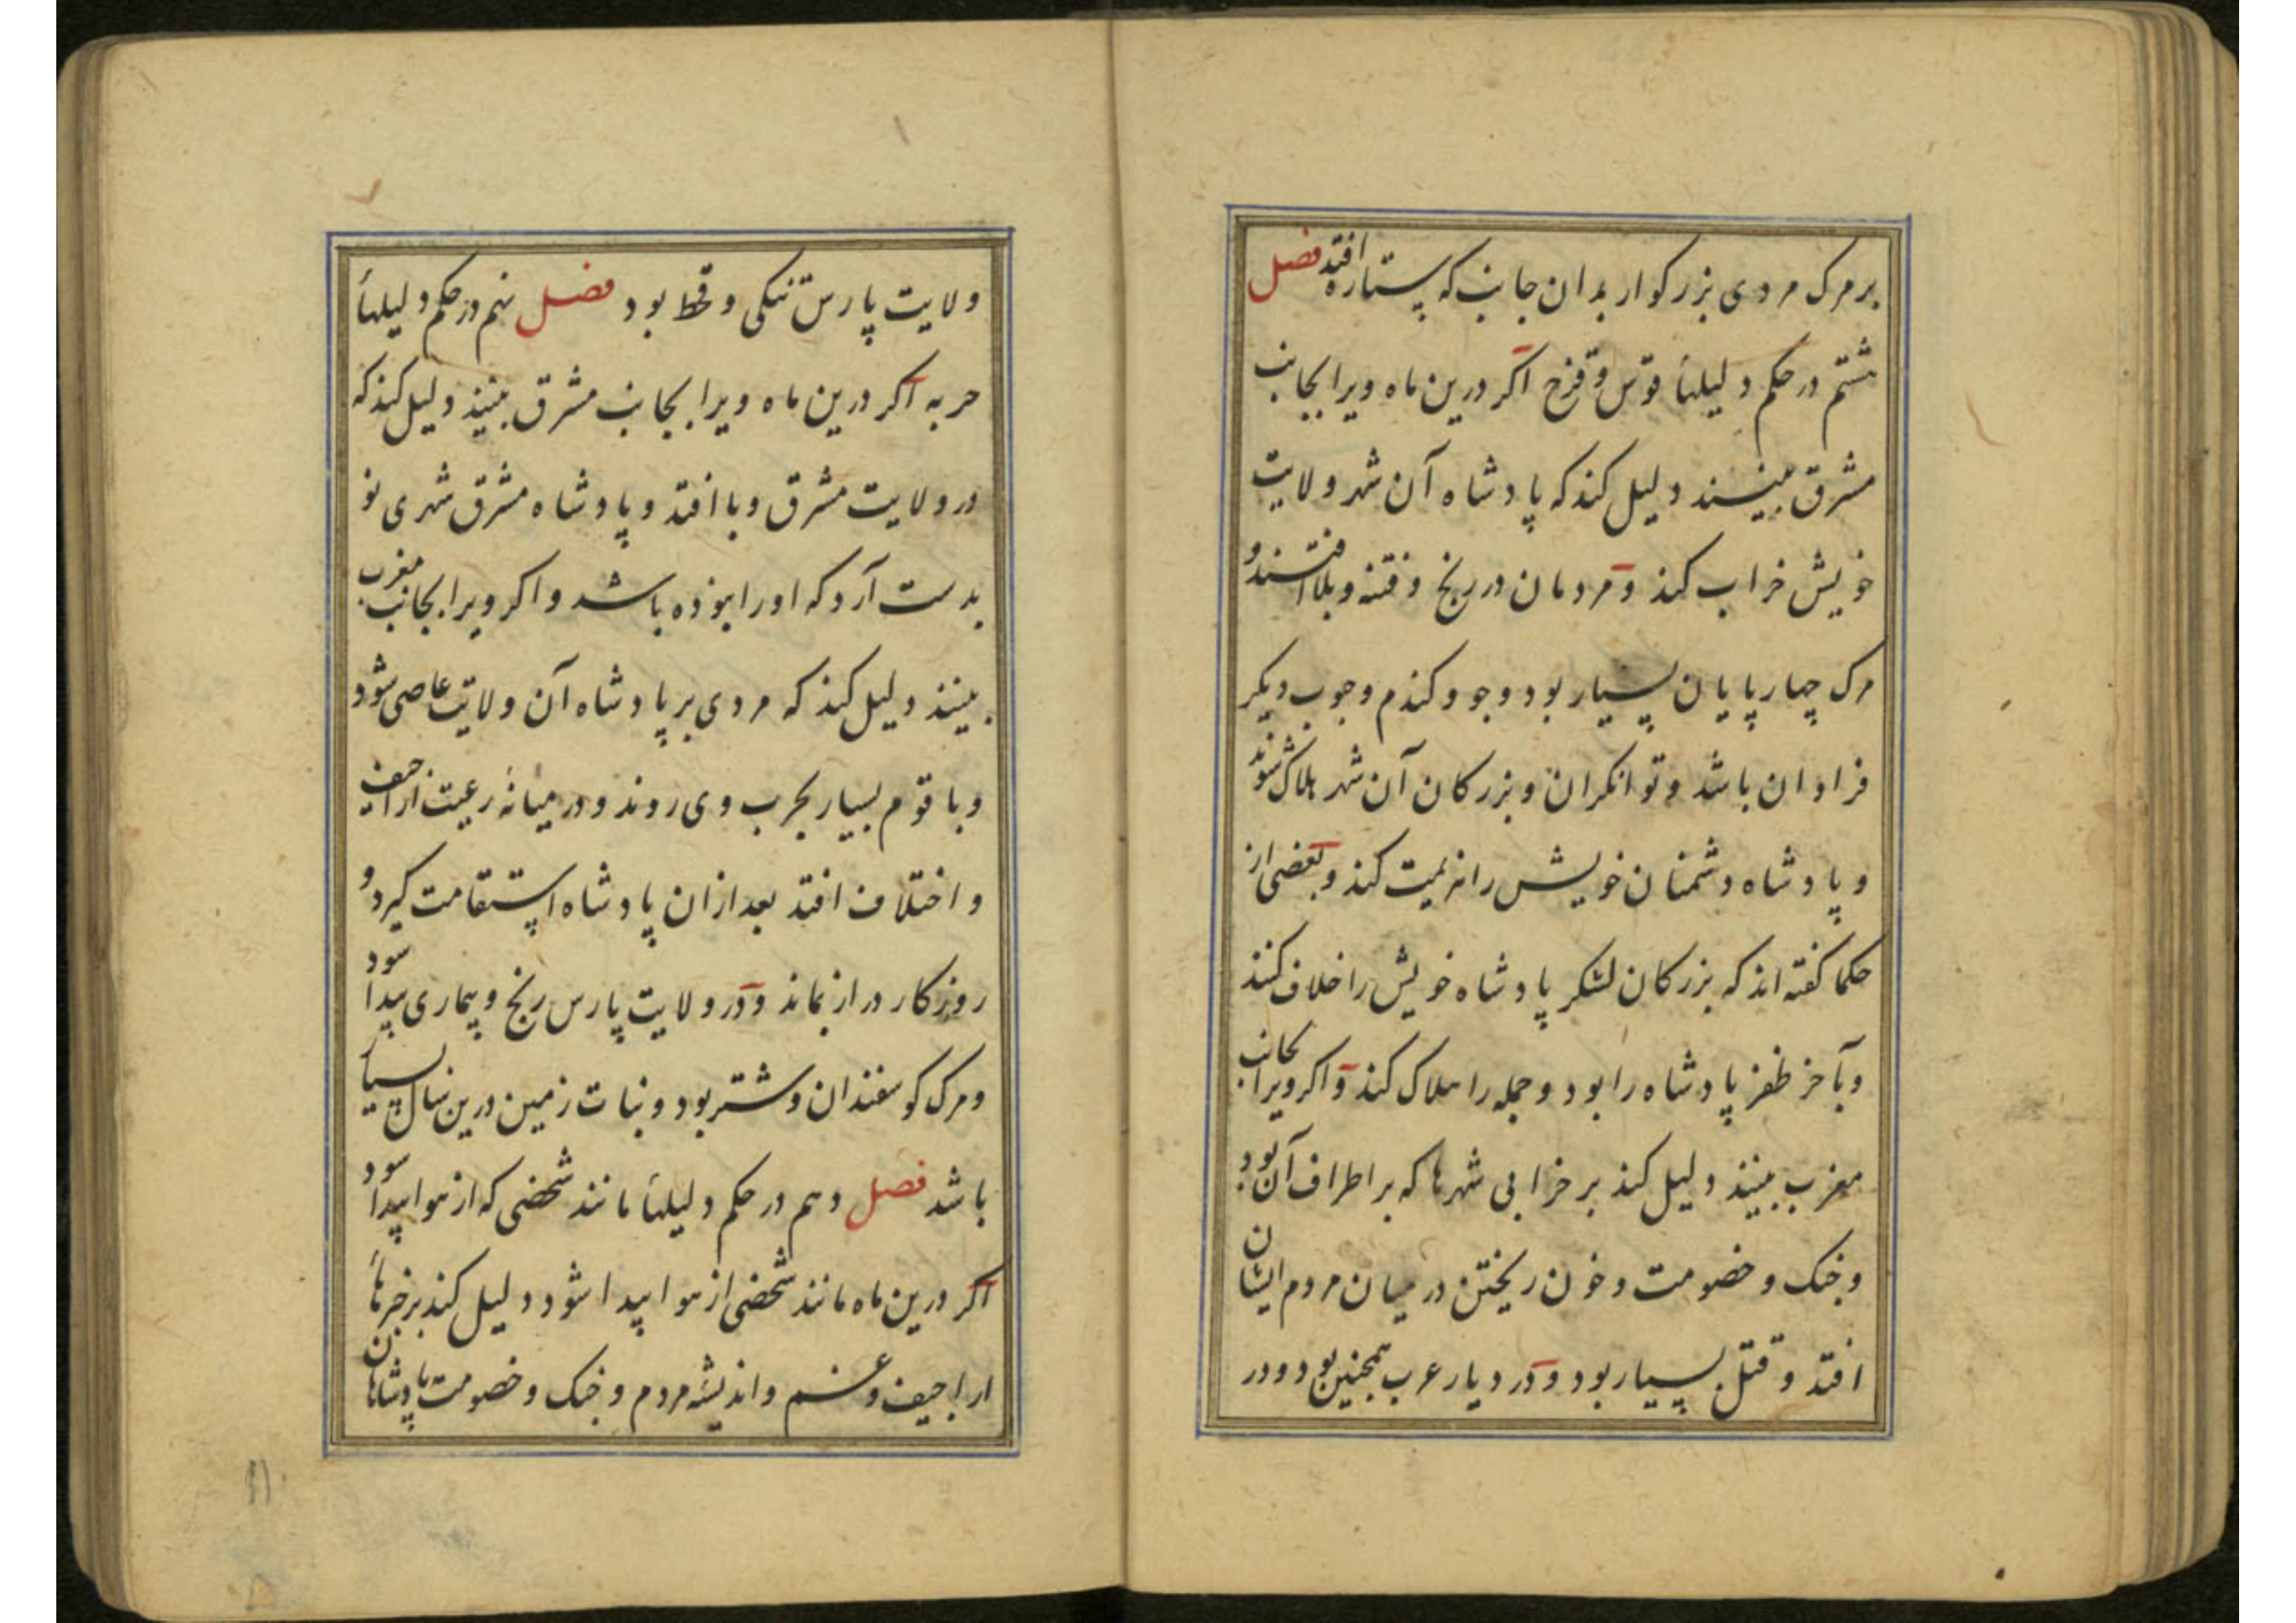 بر مرک مردی بزرکوار بدان جانب که ستاره افتد فصل
هشتم در حکم دلیلهأ قوس و قزح اکر درین ماه ویرا بجانب
مشرق ببینند دلیل کند که پادشاه آن شهر ولایت
خویش خراب کند و مردمان در رنج و فتنه و بلا افتند و
مرک چهارپایان بسیار بود و جو و کندم و حبوب دیکر
فراوان باشد و توانکران و بزرکان آن شهر هلاک شوند
و پادشاه دشمنان خویش را هزیمت کند و بعضی از
حکما کفته اند که بزرکان لشکر پادشاه خویش را خلاف کنند
و بآخر ظفر پادشاه را بود و جمله را هلاک کند و اکر ویرا بجانب
مغرب ببینند دلیل کند بر خرابی شهرها که بر اطراف آن بود
و جنک و خصومت و خون ریختن در میان مردم ایشان
افتد و قتل بسیار بود و در دیار عرب همچنین بود و در
ولایت پارس تنکی و قحط بود فصل نهم در حکم دلیلهأ
حربه اکر درین ماه ویرا بجانب مشرق ببینند دلیل کند که
در ولایت مشرق وبا افتد و پادشاه مشرق شهری نو
بدست آرد که اورا نبوده باشد و اکر ویرا بجانب مغرب
ببینند دلیل کند که مردی بر پادشاه آن ولایت عاصی شود
و با قوم بسیار بحرب وی روند و در میانهٔ رعیت اراجیف
و اختلاف افتد بعد ازان پادشاه استقامت کیرد و
روزکار دراز بماند و در ولایت پارس رنج و بیماری پیدا شود
و مرک کوسفندان و شتر بود و نبات زمین درین سال بسیار
باشد فصل دهم در حکم دلیلهأ مانند شخصی که از هوا پیدا شود
اکر درین ماه مانند شخصی از هوا پیدا شود دلیل کند بر خبرهأ
اراجیف و غم و اندیشه مردم و جنک و خصومت با پادشاهان